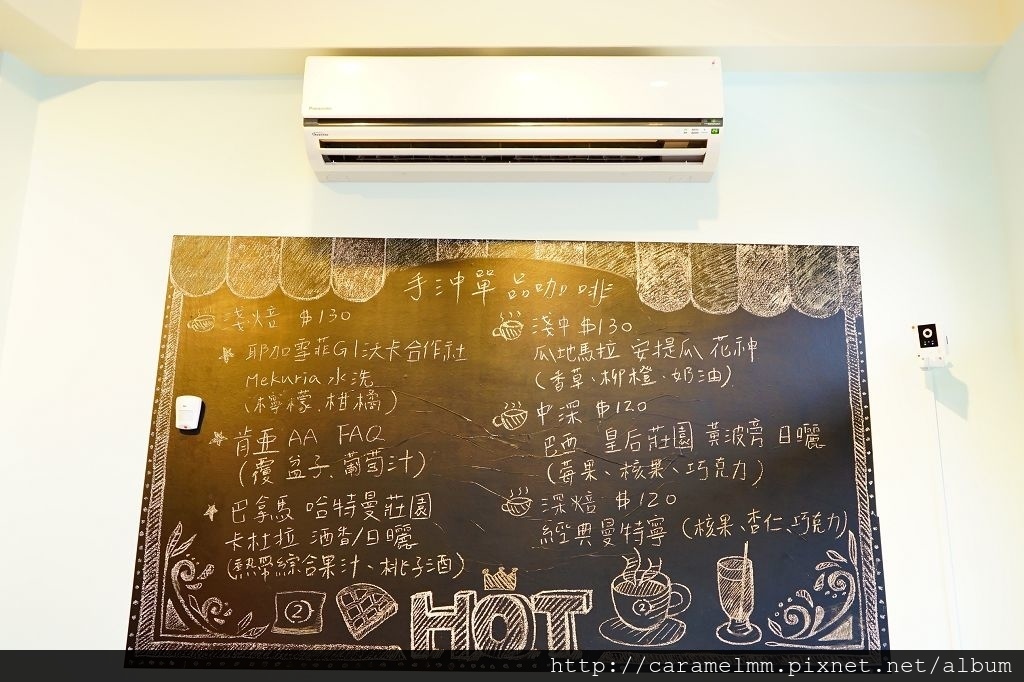 Panasonic
手沖單品咖啡
淺焙 $130
耶加雪菲G1沃卡合作社
Mekuria 水洗
(檸檬、柑橘)
肯亞 AA FAQ
(覆盆子、葡萄汁)
巴拿馬 哈特曼莊園
卡杜拉 酒香/日曬
(熱帶綜合果汁、桃子酒)
淺中 $130
瓜地馬拉 安提瓜 花神
(香草、柳橙、奶油)
中深 $120
巴西 皇后莊園 黃波旁 日曬
(莓果、核果、巧克力)
深焙 $120
經典曼特寧 (核果、杏仁、巧克力)
2
HOT
2
http://caramelmm.pixnet.net/album